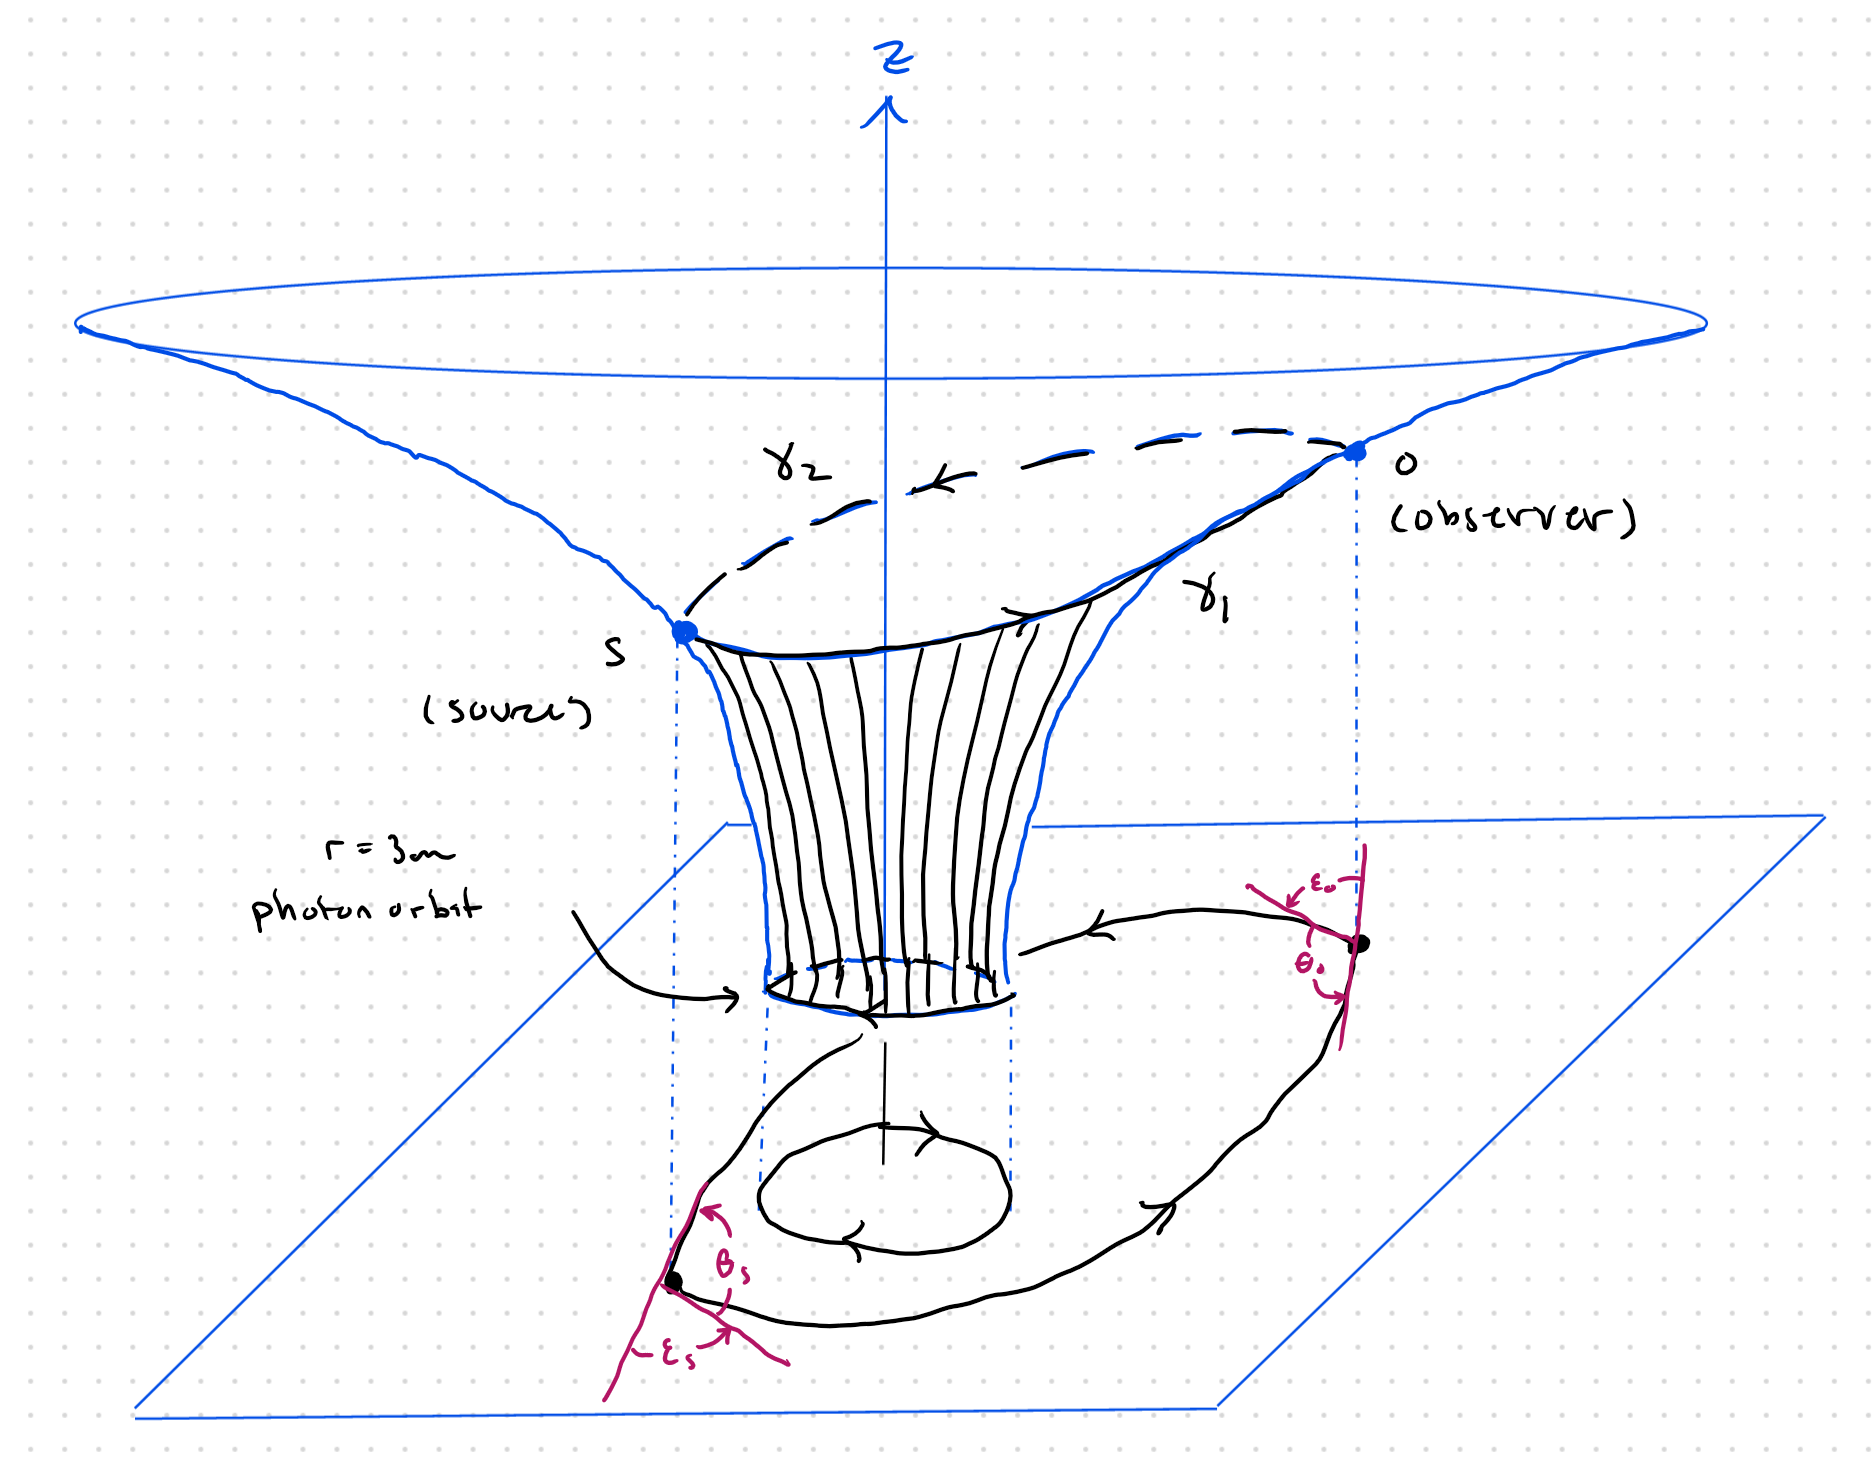 z
γ₂
O
(observer)
γ₁
S
(source)
r = 3m
photon orbit
ε₀
θ₀
θₛ
εₛ